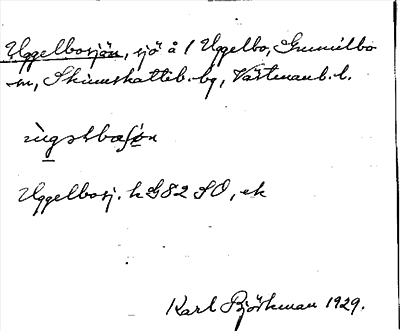 Uggelbosjön, sjö å 1 Uggelbo, Gunnilbo
sn, Skinnskatteb. bg, Västmanl. l.
Uggelbosj. k G82 SO, ek
Karl Björkman 1929.